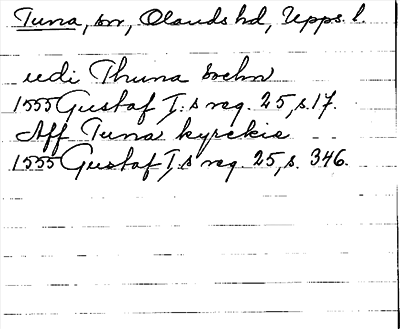 Tuna, sn, Olands hd, Upps. l.
udi Thuna Sochn
1555 Gustaf I:s reg. 25, s. 17.
Aff Tuna kyrckia
1555 Gustaf I,s reg. 25, s. 346.